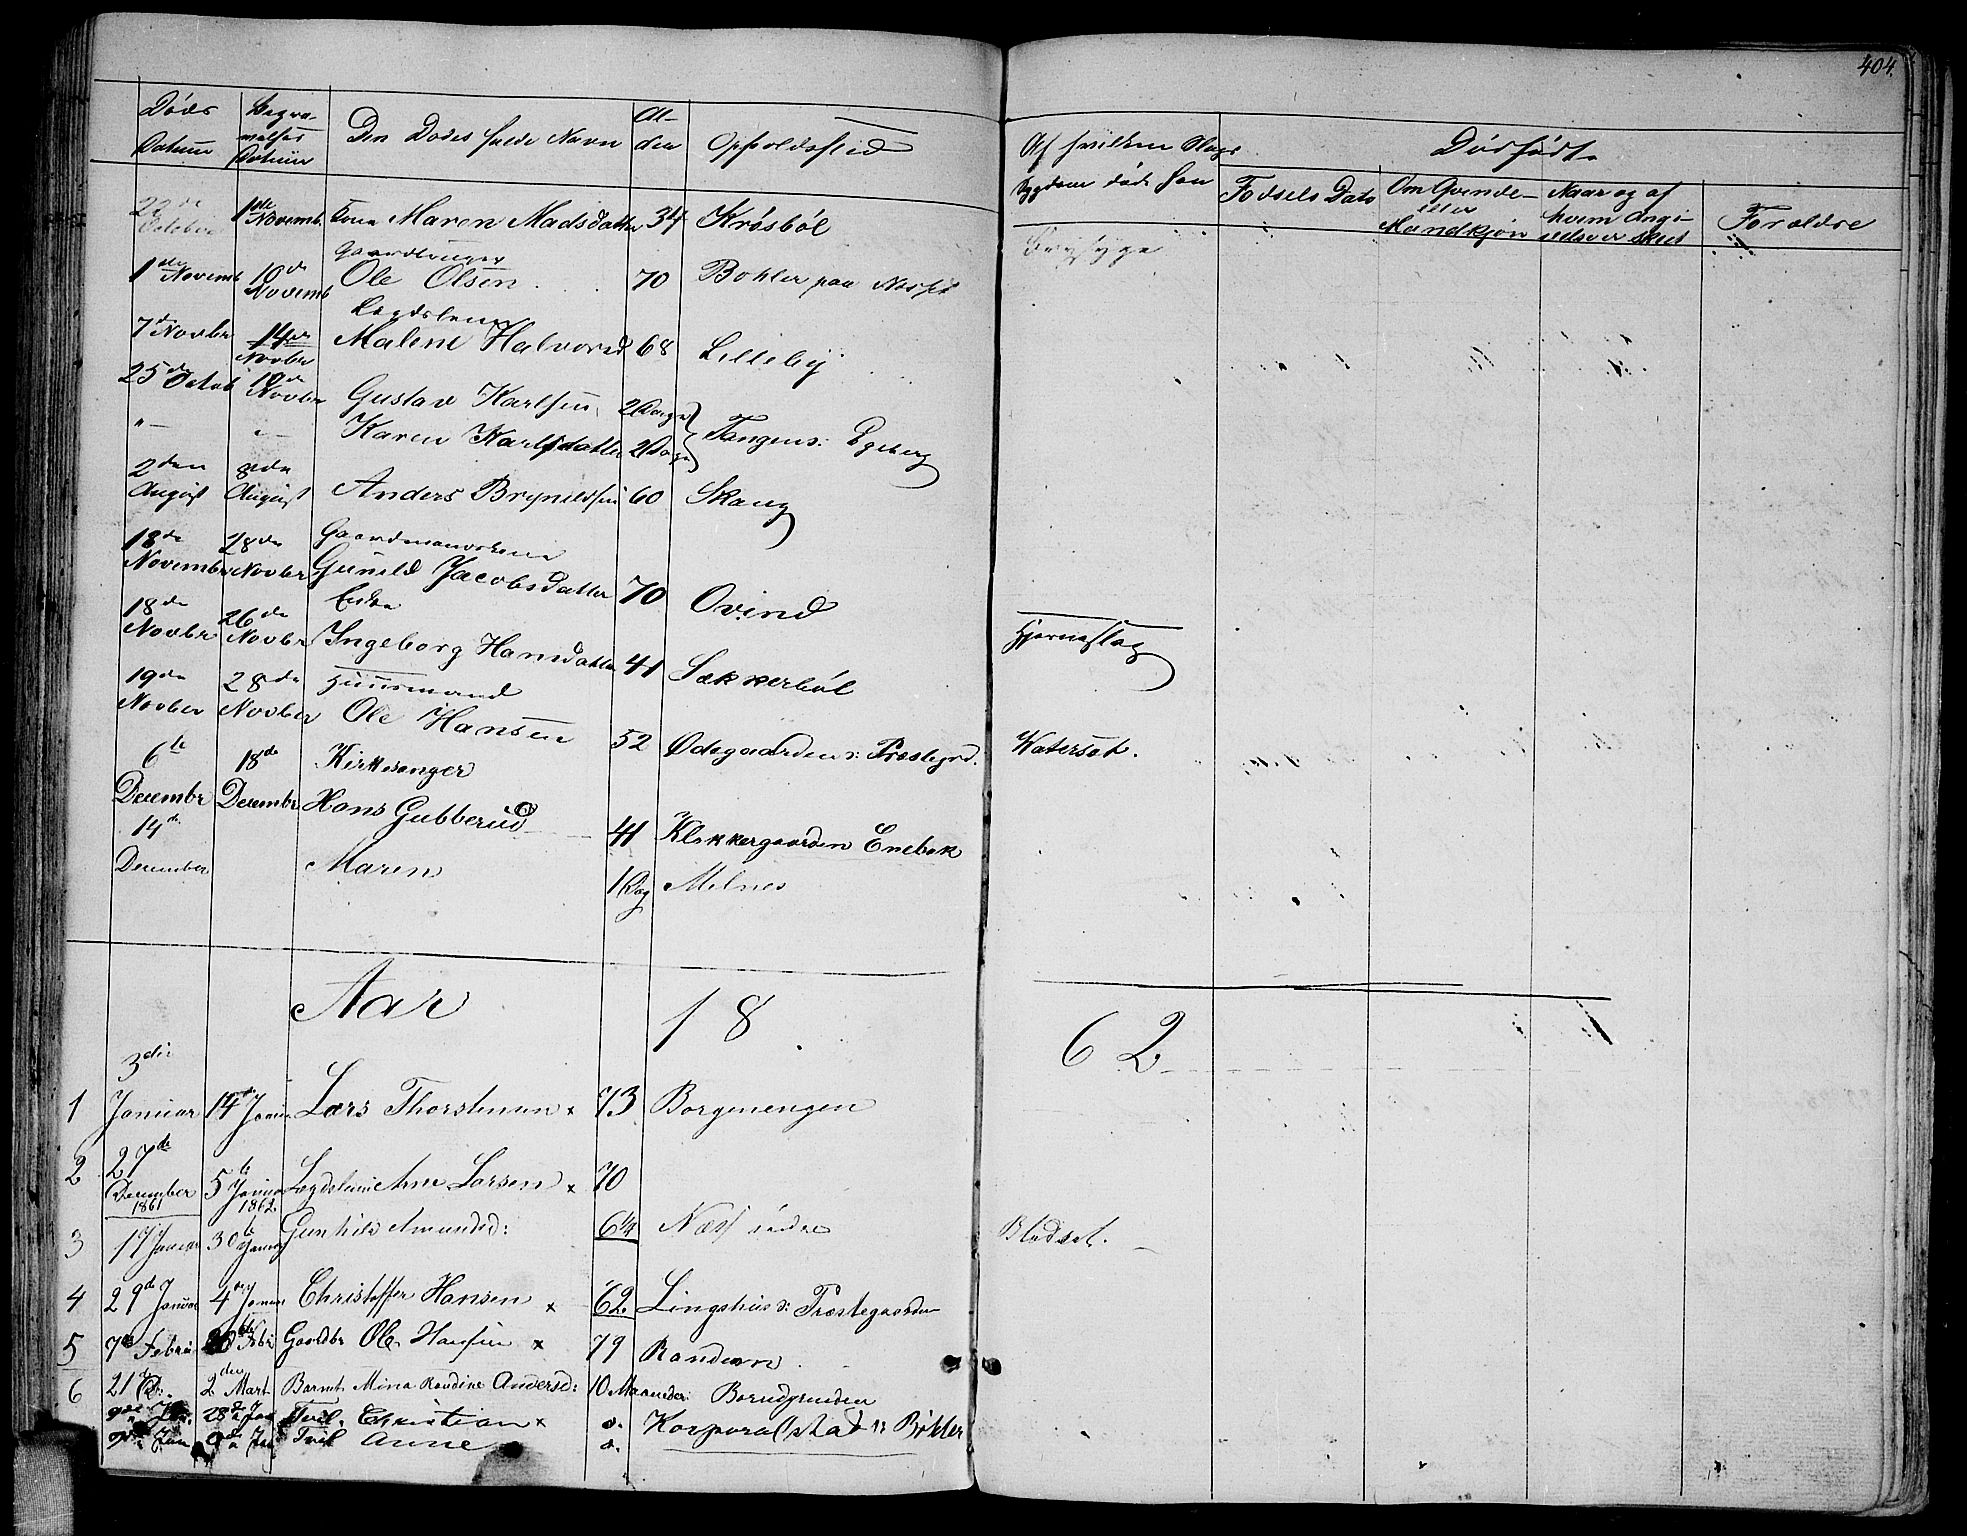 404.
Døds Datum | Begravelses Datum | Den Dødes fulde Navn | Alder | Opholdssted | Af hvilken Slags Sygdom døde han | Dødfødte
Fødsels Dato | Om Qvinde- eller Mandkjøn | Naar og af hvem Angivelsen er skeet | Forældre
22de October | 1ste Novembr | Kone Maren Madsdatter | 34 | Krøsbøl
1ste Novemb | 10de Novemb | Gaardbruger Ole Olsen | 70 | Bohler paa Nesset
7de Novbr | 14de Novber | Lægdslem Malene Halvorsd | 68 | Lilleby
25de Octob | 10de Novbr | Gustav Karlsen | 2 Dage | Tangens: Egeberg
"— | "— | Karen Karlsdatter | 2 Dage
2den August | 8de August | Anders Brynildsen | 60 | Skaug
18de Novembr | 28de Novbr | Gaardmandskone Gunild Jacobsdatter | 70 | Ovind
18de Novbr | 26de Novbr | Enke Ingeborg Hansdatter | 41 | Sækkerbøl | Hjerneslag
19de Novber | 28de Novber | Huusmand Ole Hansen | 52 | Ødegaarden: Præstegrd. | Watersot.
6te Decembr | 18de Decembr | Kirkesanger Hans Gubberud | 41 | Klokkergaarden Enebak
14de December | Maren | 1 Dag | Melnes
Aar 18 62
1 | 3die Januar | 14de Januar | Lars Thorstensen x | 73 | Borgenengen
2 | 27de December 1861 | 5te Januar 1862. | Lægdslem Arne Larsen x | 70
3 | 17 Januar | 30te Januar | Gunhild Amundsd: | 64 | Næss indre | Blodsot.
4 | 29de Januar | 4 | Christoffer Hansen x | 62. | Lingshus: Præstegaarden
5 | 7de Februar | Febr | Gaardbr Ole Hansen x | 79 | Randem
6 | 21de | 2den Mart | Barnet Mina Randine Andersd: | 10 Maaneder | Borudgrunden
28de Jan | Tvil. Christian x | Korporalstad Bøhler
Jan | Tvil Anne